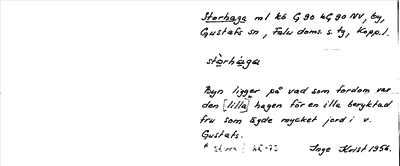 Storhaga ml kb G 90 4G 90 NV, by,
Gustafs sn, Falu doms. s. tg, Kopp. l.
stòrhága
Byn ligger på vad som fordom var
den [lilla] hagen för en illa beryktad
fru som ägde mycket jord i v.
Gustafs.
Inge Krist 1956.